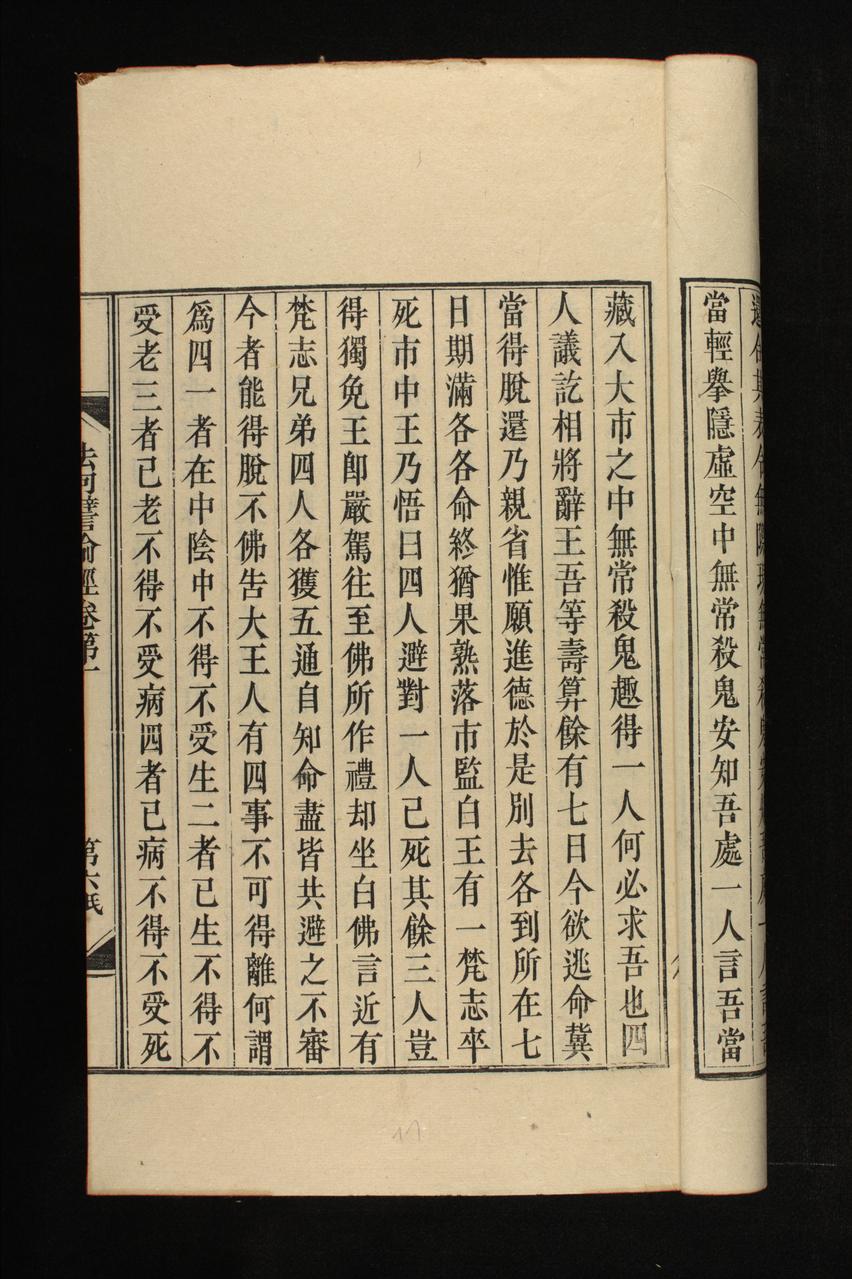 當輕擧隱虛空中無常殺鬼安知吾處一人言吾當
藏入大市之中無常殺鬼趣得一人何必求吾也四
人議訖相將辭王吾等壽算餘有七日今欲逃命冀
當得脫還乃親省惟願進德於是別去各到所在七
日期滿各各命終猶果熟落市監白王有一梵志卒
死市中王乃悟曰四人避對一人已死其餘三人豈
得獨免王卽嚴駕往至佛所作禮却坐白佛言近有
梵志兄弟四人各獲五通自知命盡皆共避之不審
今者能得脫不佛告大王人有四事不可得離何謂
爲四一者在中陰中不得不受生二者已生不得不
受老三者已老不得不受病四者已病不得不受死
法句譬喻經卷第一
第六